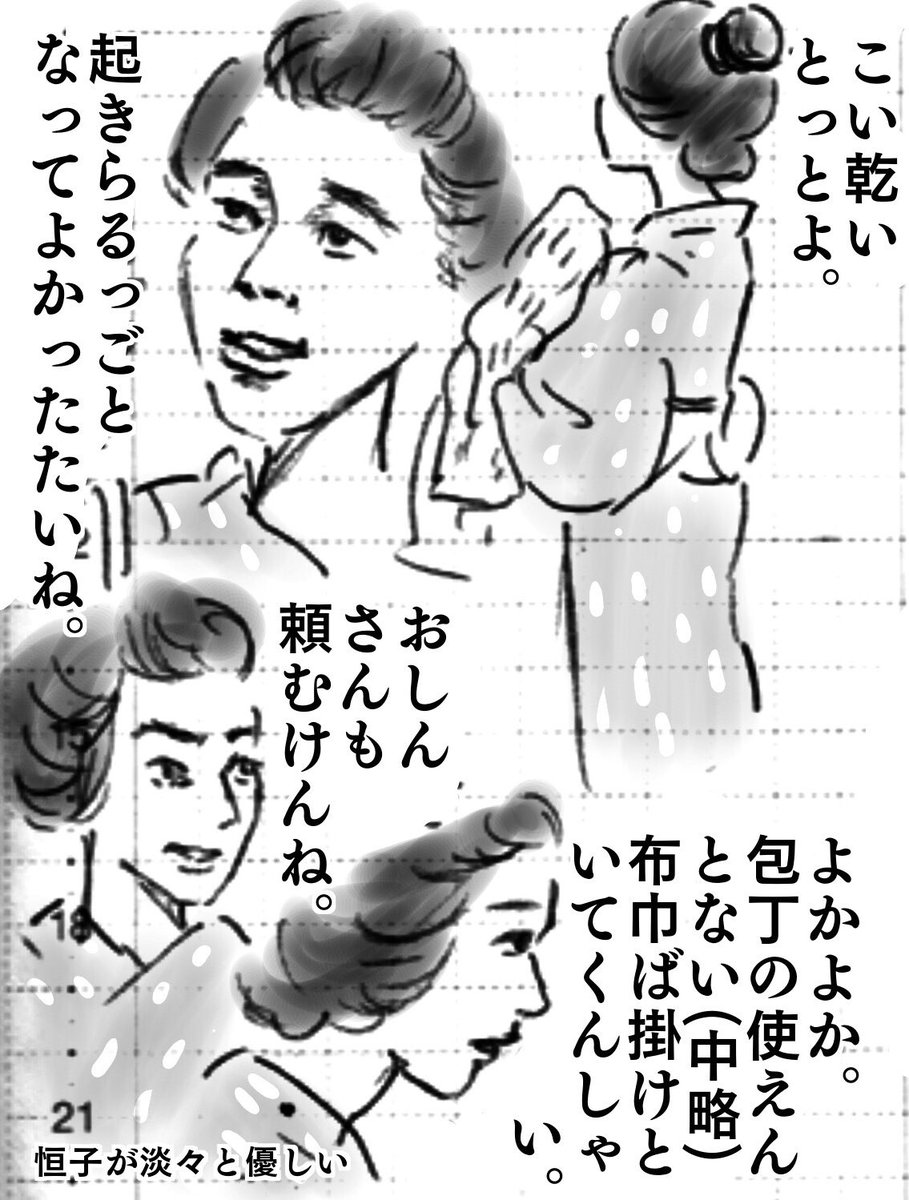 こい乾い
とっとよ。
起きらるっごと
なってよかったたいね。
おしん
さんも
頼むけんね。
よかよか。
包丁の使えん
とない(中略)
布巾ば掛けと
いてくんしゃ
い。
15
18
21
恒子が淡々と優しい